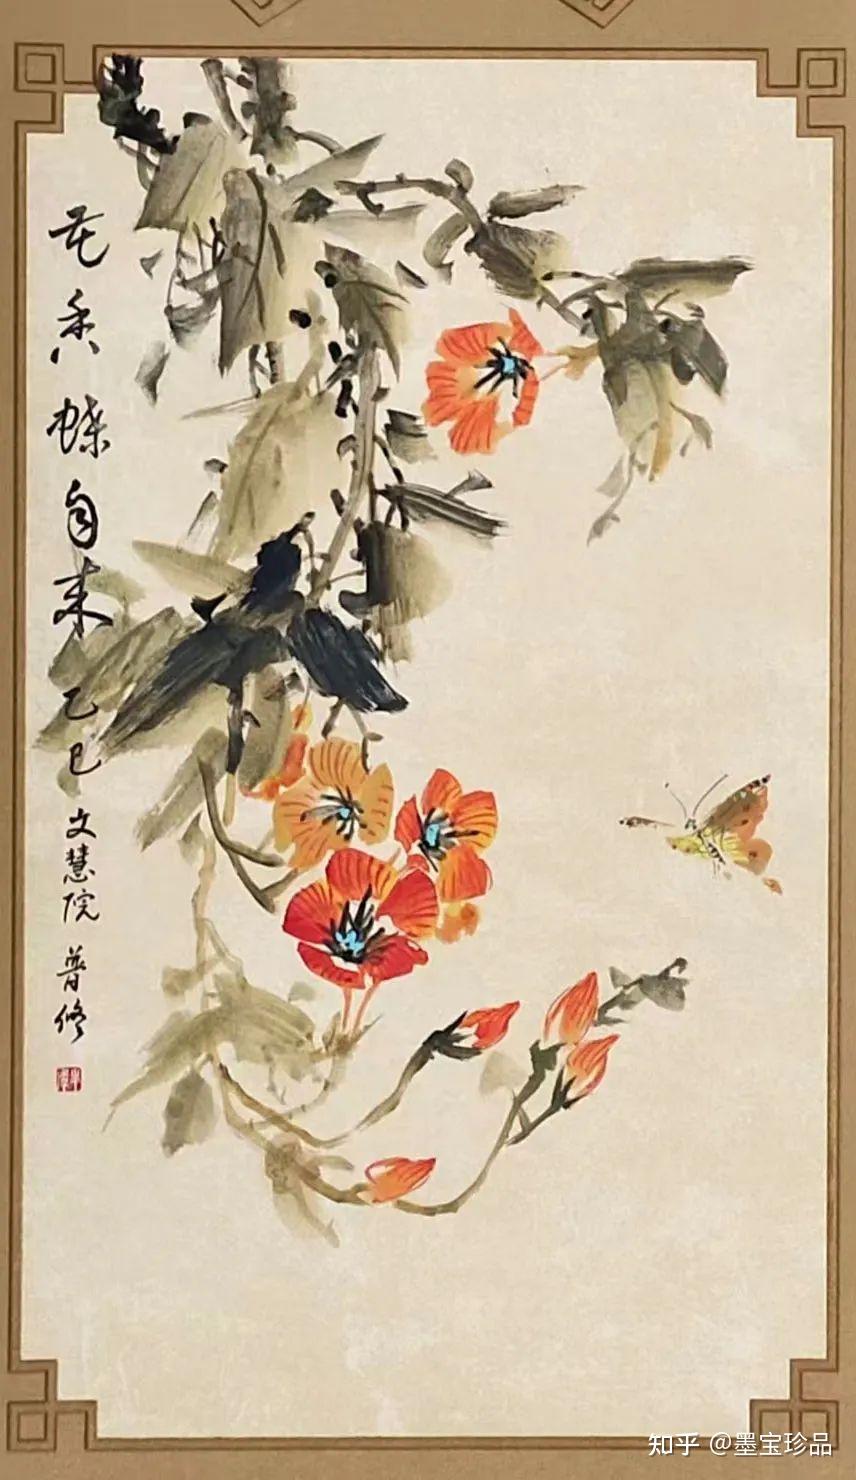 花香蝶自来
乙巳
文慧院
普修
知乎 @墨宝珍品